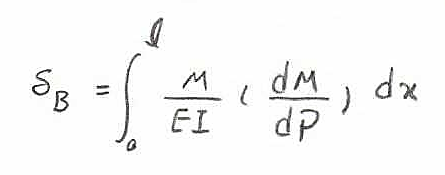 δ_B = ∫_0^l M/EI (dM/dP) dx